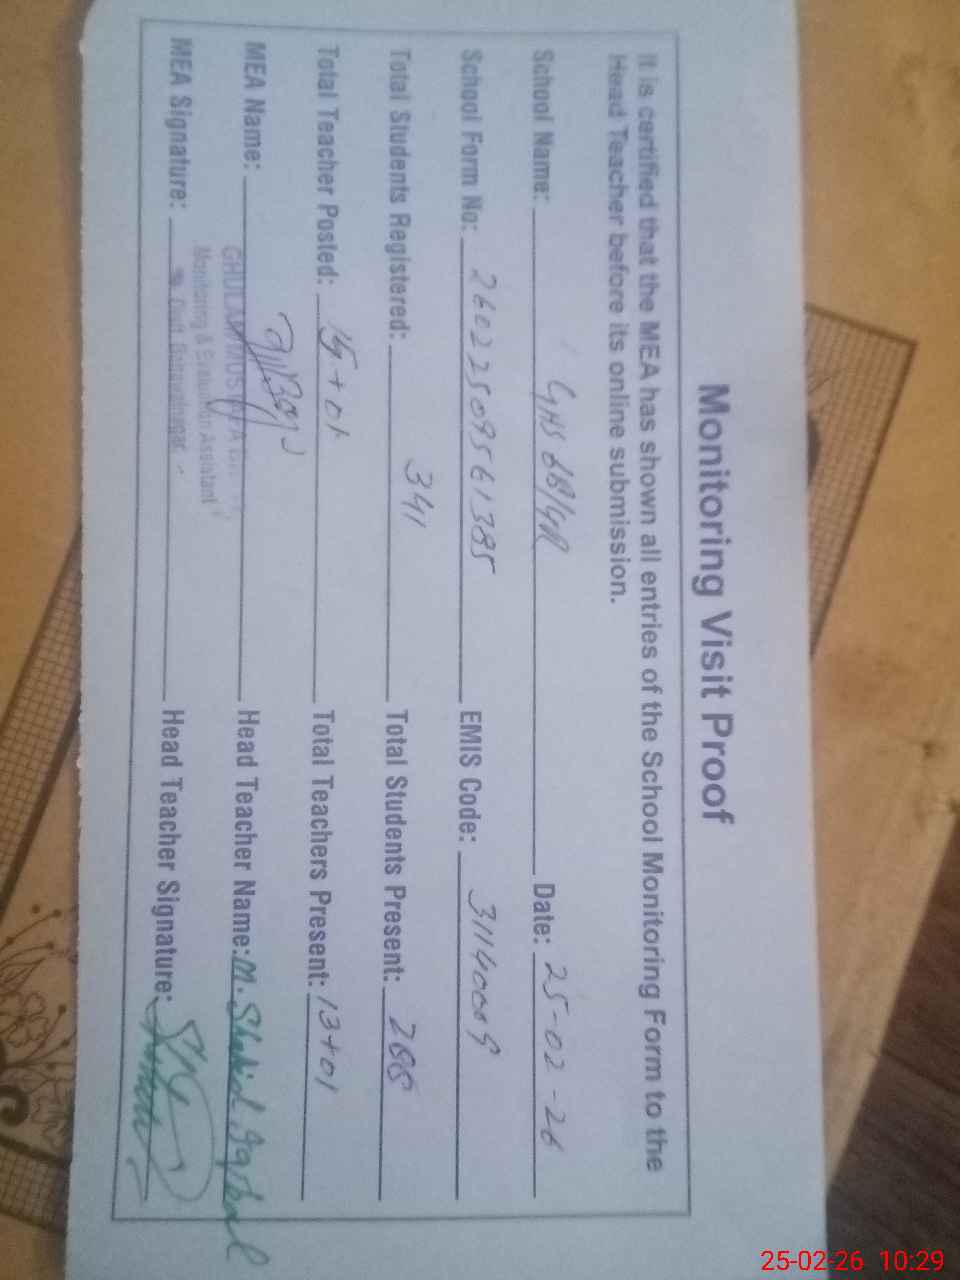 Monitoring Visit Proof
It is certified that the MEA has shown all entries of the School Monitoring Form to the
Head Teacher before its online submission.
School Name: GHS 68/4R Date: 25-02-26
School Form No: 26022509561385 EMIS Code: 31140009
Total Students Registered: 341 Total Students Present: 288
Total Teacher Posted: 15+01 Total Teachers Present: 13+01
MEA Name: GHULAM Head Teacher Name: M. Shahid Iqbal
Monitoring & Evaluation Assistant
MEA Signature: Bahawalnagar Head Teacher Signature:
25-02-26 10:29